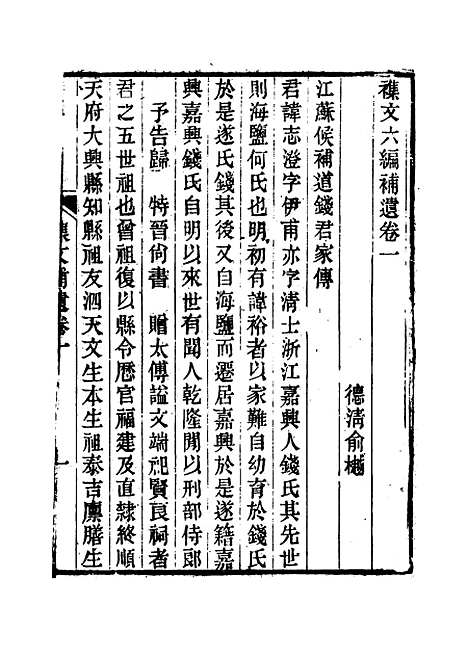 襍文六編補遺卷一
德淸俞樾
江蘇候補道錢君家傳
君諱志澄字伊甫亦字淸士浙江嘉興人錢氏其先世
則海鹽何氏也明初有諱裕者以家難自幼育於錢氏
於是遂氏錢其後又自海鹽而遷居嘉興於是遂籍嘉
興嘉興錢氏自明以來世有聞人乾隆閒以刑部侍郞
予告歸 特晉尙書 贈太傅諡文端祀賢良祠者
君之五世祖也曾祖復以縣令歷官福建及直隸終順
天府大興縣知縣祖友泗天文生本生祖泰吉廩膳生
襍文補遺卷一